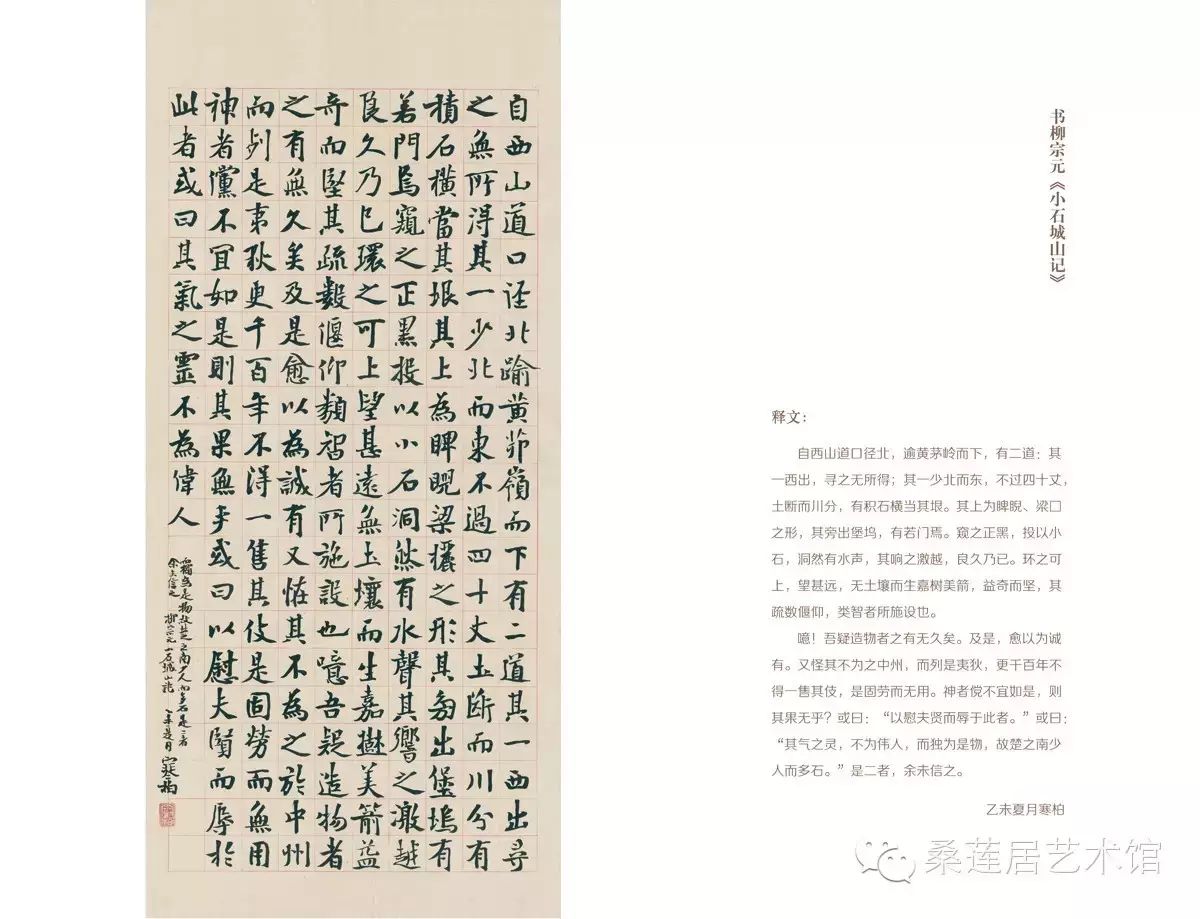 自西山道口迳北踰黄茆嶺而下有二道其一西出尋
之無所得其一少北而東不過四十丈土断而川分有
積石橫當其垠其上為睥睨梁欐之形其旁出堡塢有
若門焉窺之正黑投以小石洞然有水聲其響之激越
良久乃已環之可上望甚遠無土壤而生嘉樹美箭益
奇而堅其疏數偃仰類智者所施設也噫吾疑造物者
之有無久矣及是愈以為誠有又怪其不為之於中州
而列是夷狄更千百年不得一售其伎是固勞而無用
神者儻不宜如是則其果無乎或曰以慰夫賢而辱於
此者或曰其氣之靈不為偉人
為是物故楚之南少人而多石是二者
余未信之 柳宗元小石城山記 乙未夏月寒柏
书柳宗元《小石城山记》
释文：
自西山道口径北，逾黄茅岭而下，有二道：其
一西出，寻之无所得；其一少北而东，不过四十丈，
土断而川分，有积石横当其垠。其上为睥睨、梁囗
之形，其旁出堡坞，有若门焉。窥之正黑，投以小
石，洞然有水声，其响之激越，良久乃已。环之可
上，望甚远，无土壤而生嘉树美箭，益奇而坚，其
疏数偃仰，类智者所施设也。
噫！吾疑造物者之有无久矣。及是，愈以为诚
有。又怪其不为之中州，而列是夷狄，更千百年不
得一售其伎，是固劳而无用。神者傥不宜如是，则
其果无乎？或曰：“以慰夫贤而辱于此者。”或曰：
“其气之灵，不为伟人，而独为是物，故楚之南少
人而多石。”是二者，余未信之。
乙未夏月寒柏
桑莲居艺术馆